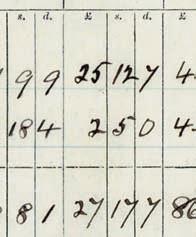 s. d. £ s. d. £
9 9 25 12 7 4
18 4 2 5 0 4
8 1 27 17 7 86